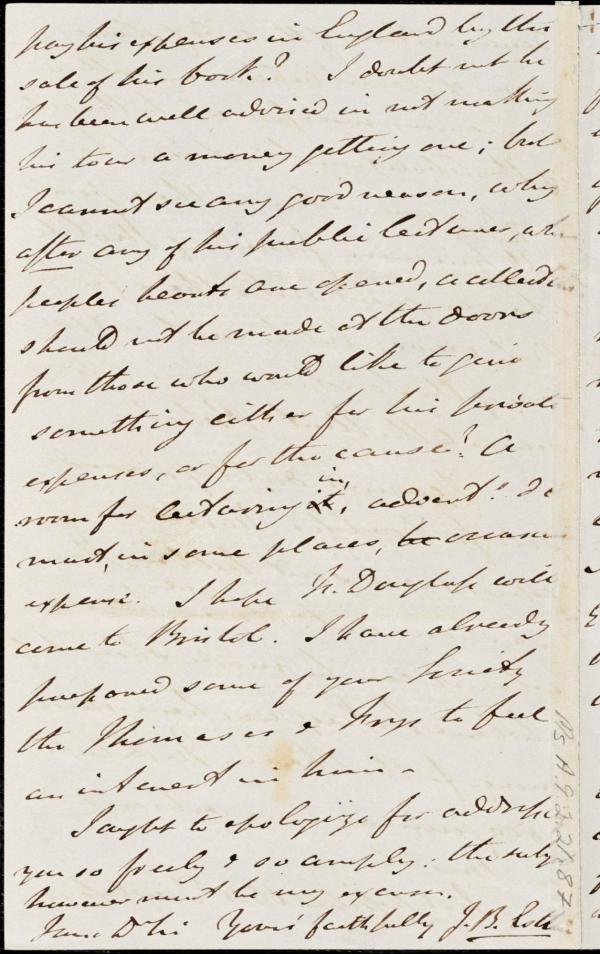 pay his expenses in England by the
sale of his book? I doubt not he
has been well advised in not making
his tour a money getting one; but
I cannot see any good reason, why
after any of his public lectures, wh
peoples hearts are opened, a collect
should not be made at the doors
from those who would like to give
something either for his private
expenses, or for the cause? A
in
room for lecturing it, advert.s &c
must, in some places, be occasion
expense. I hope F. Douglass will
come to Bristol. I have already
prepared some of your Society
the Thomases & Frys to feel
an interest in him -
I ought to apologize for address
you so freely & so amply: the subj
however must be my excuse.
Yours faithfully J. B. Estl
Ms A.9.2.21.87